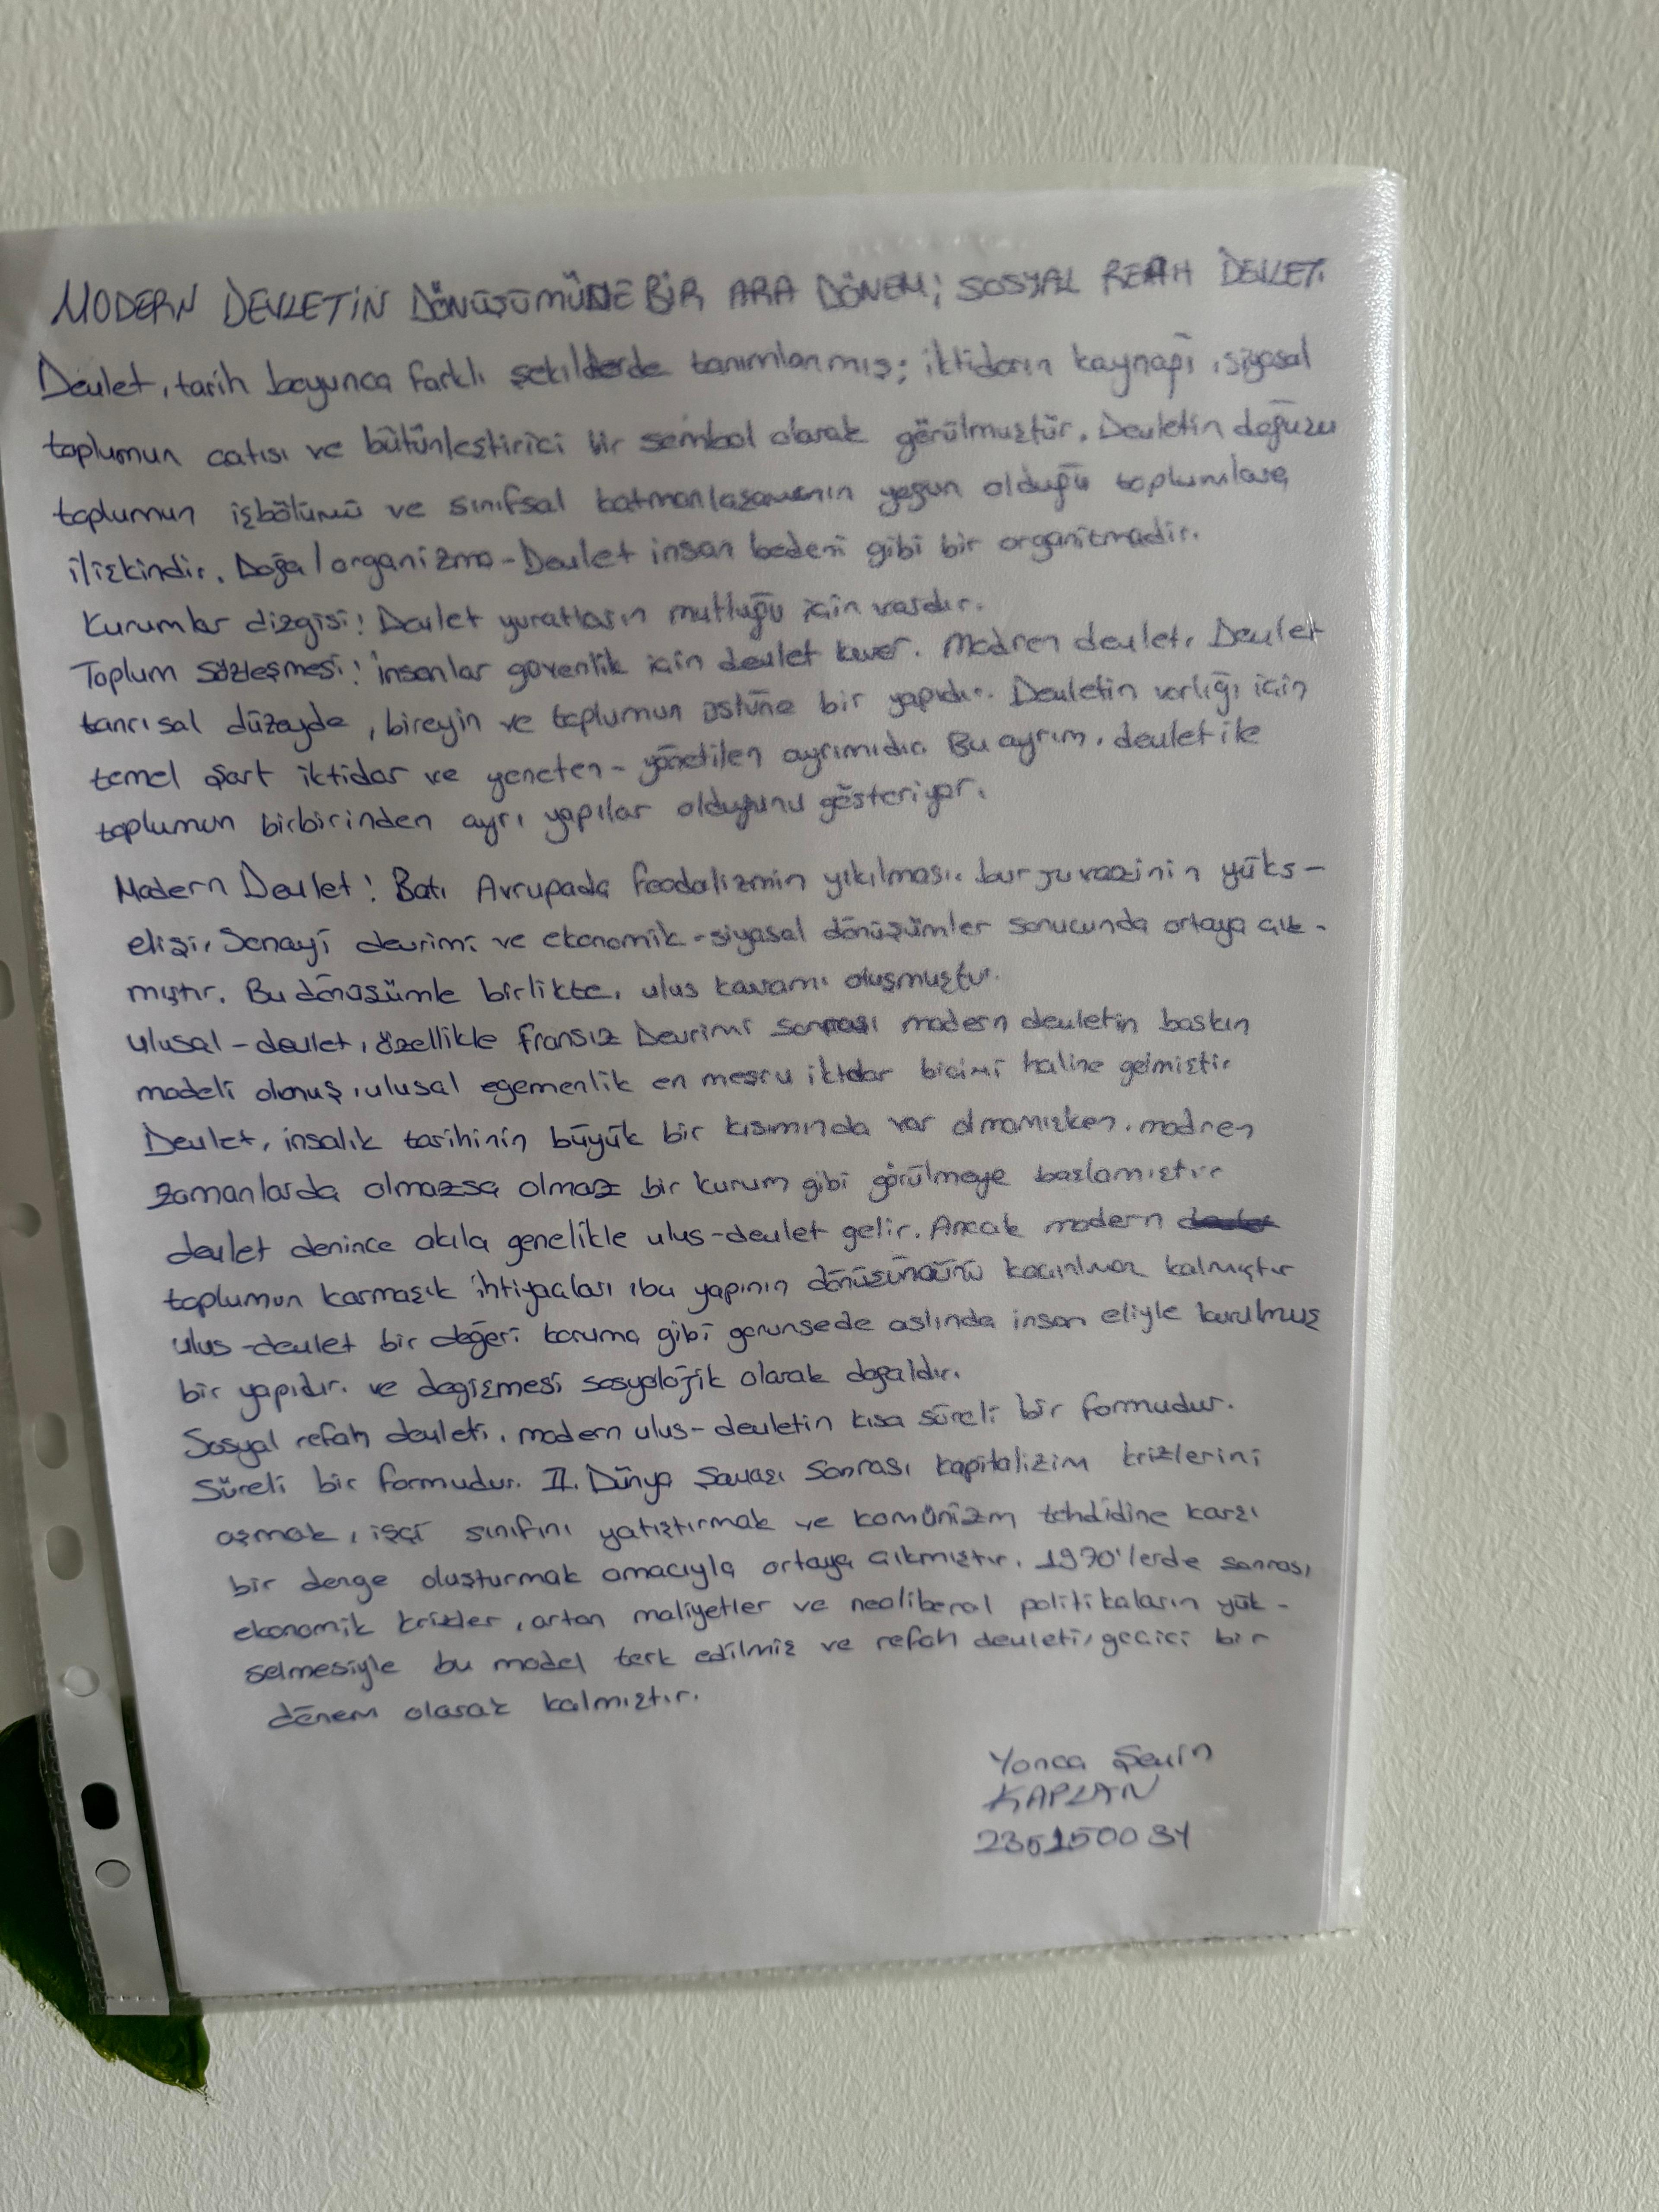 MODERN DEVLETİN DÖNÜŞÜMÜNE BİR ARA DÖNEM; SOSYAL REFAH DEVLETİ
Devlet, tarih boyunca farklı şekilderde tanımlanmış; iktidarın kaynağı, siyasal
toplumun çatısı ve bütünleştirici bir sembol olarak görülmüştür. Devletin doğuşu
toplumun işbölümü ve sınıfsal katmanlaşmanın yoğun olduğu toplumlara
ilişkindir. Doğa/organizma - Devlet insan bedeni gibi bir organizmadir.
Kurumlar dizgisi! Devlet yurattarın mutluğu için vardır.
Toplum Sözleşmesi! insanlar güvenlik için devlet kurar. Madren devlet, Devlet
tanrısal düzeyde, bireyin ve toplumun üstüne bir yapıdır. Devletin varlığı için
temel şart iktidar ve yeneten - yönetilen ayrımıdır. Bu ayrım, devlet ile
toplumun birbirinden ayrı yapılar olduğunu gösteriyor.
Modern Devlet! Batı Avrupada feodalizmin yıkılması, burjuvazinin yüks -
elişi, Sanayi devrimi ve ekonomik - siyasal dönüşümler sonucunda ortaya çık -
mıştır. Bu dönüşümle birlikte, ulus kavramı oluşmuştur.
ulusal - devlet, özellikle fransız Devrimi sonrası modern devletin baskın
modeli olmuş, ulusal egemenlik en meşru iktidar biçimi haline gelmiştir
Devlet, insalık tarihinin büyük bir kısımında var olmamışken, madren
zamanlarda olmazsa olmaz bir kurum gibi görülmeye başlamıştır
devlet denince akıla genelikle ulus-devlet gelir. Ancak modern
toplumun karmaşık ihtiyaçları, bu yapının dönüşümünü kaçınılmaz kalmıştır
ulus-devlet bir değeri koruma gibi gorunsede aslında insan eliyle kurulmuş
bir yapıdır. ve degişmesi sosyolojik olarak doğaldır.
Sosyal refah devleti, modern ulus-devletin kısa süreli bir formudur.
Süreli bir formudur. II. Dünya Savaşı Sonrası kapitalizim krizlerini
aşmak, işçi sınıfını yatıştırmak ve komünizm tehdidine karşı
bir denge oluşturmak amacıyla ortaya çıkmıştır. 1970'lerde sonrası
ekonomik krizler, artan maliyetler ve neoliberal politikaların yük -
selmesiyle bu model terk edilmiş ve refah devleti, geçici bir
dönem olarak kalmıştır.
Yonca Şevin
KAPLAN